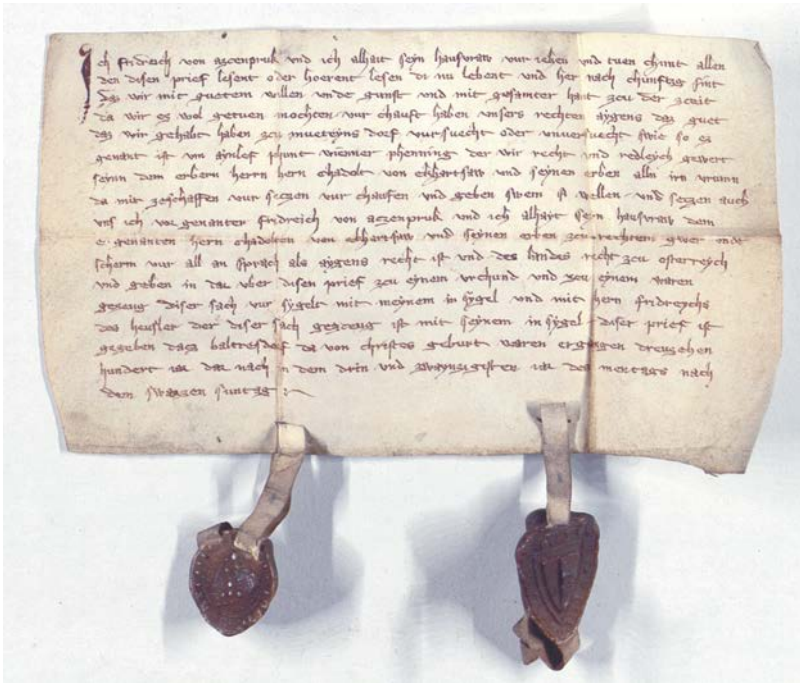 Ich fridreich von aczenpruk vnd ich alhait seyn hausvraw vur iehen vnd tuen chunt allen
den disen prief lesent oder hoerent lesen di nu lebent vnd her nach chunftig sint
daz wir mit guetem willen vnde gunst vnd mit gesamter hant zcu der zceit
da wir ez wol getuen mochten vur chauft haben vnsers rechten aygens daz guet
daz wir gehabt haben zcu dorf vursuecht oder vnversuecht swie so ez
genant ist vm aynlef phunt wienner phenning der wir recht vnd redleych gewert
seinn dem erbern herrn hern chadolt von ekhartsaw vnd seynen erben alln irn vrumn
da mit zeschaffen vur seczen vur chaufen vnd geben swem si wellen vnd seczen auch
vns ich vor genanter fridreich von aczenpruk vnd ich alhait seyn hausvraw dem
e genanten hern chadolten von ekhartsaw vnd seynen erben zcu rechtem gwer vnde
scherm vur all an sprach als aygens recht ist vnd des landes recht zcu osterreych
vnd geben in dar vber disen prief zcu eynem vrchund vnd zcu eynem waren
gezeug diser sach vur sygelt mit meynem in sygel vnd mit hern fridreychs
des heusler der diser sach gezceug ist mit seynem in sygel diser prief ist
gegeben dacz baltresdorf da von christes geburt waren ergangen dreuzehen
hundert iar dar nach in dem drin vnd zwaynzigistem iar des mentags nach
dem swarzen suntag